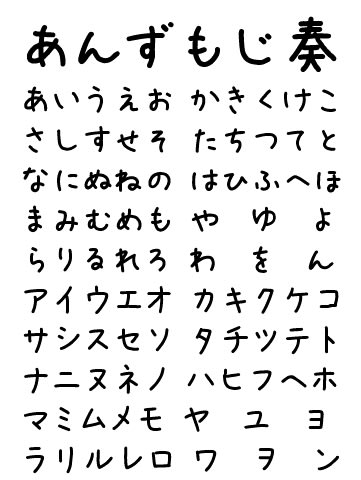 あんずもじ 奏
あいうえお かきくけこ
さしすせそ たちつてと
なにぬねの はひふへほ
まみむめも や ゆ よ
らりるれろ わ を ん
アイウエオ カキクケコ
サシスセソ タチツテト
ナニヌネノ ハヒフヘホ
マミムメモ ヤ ユ ヨ
ラリルレロ ワ ヲ ン